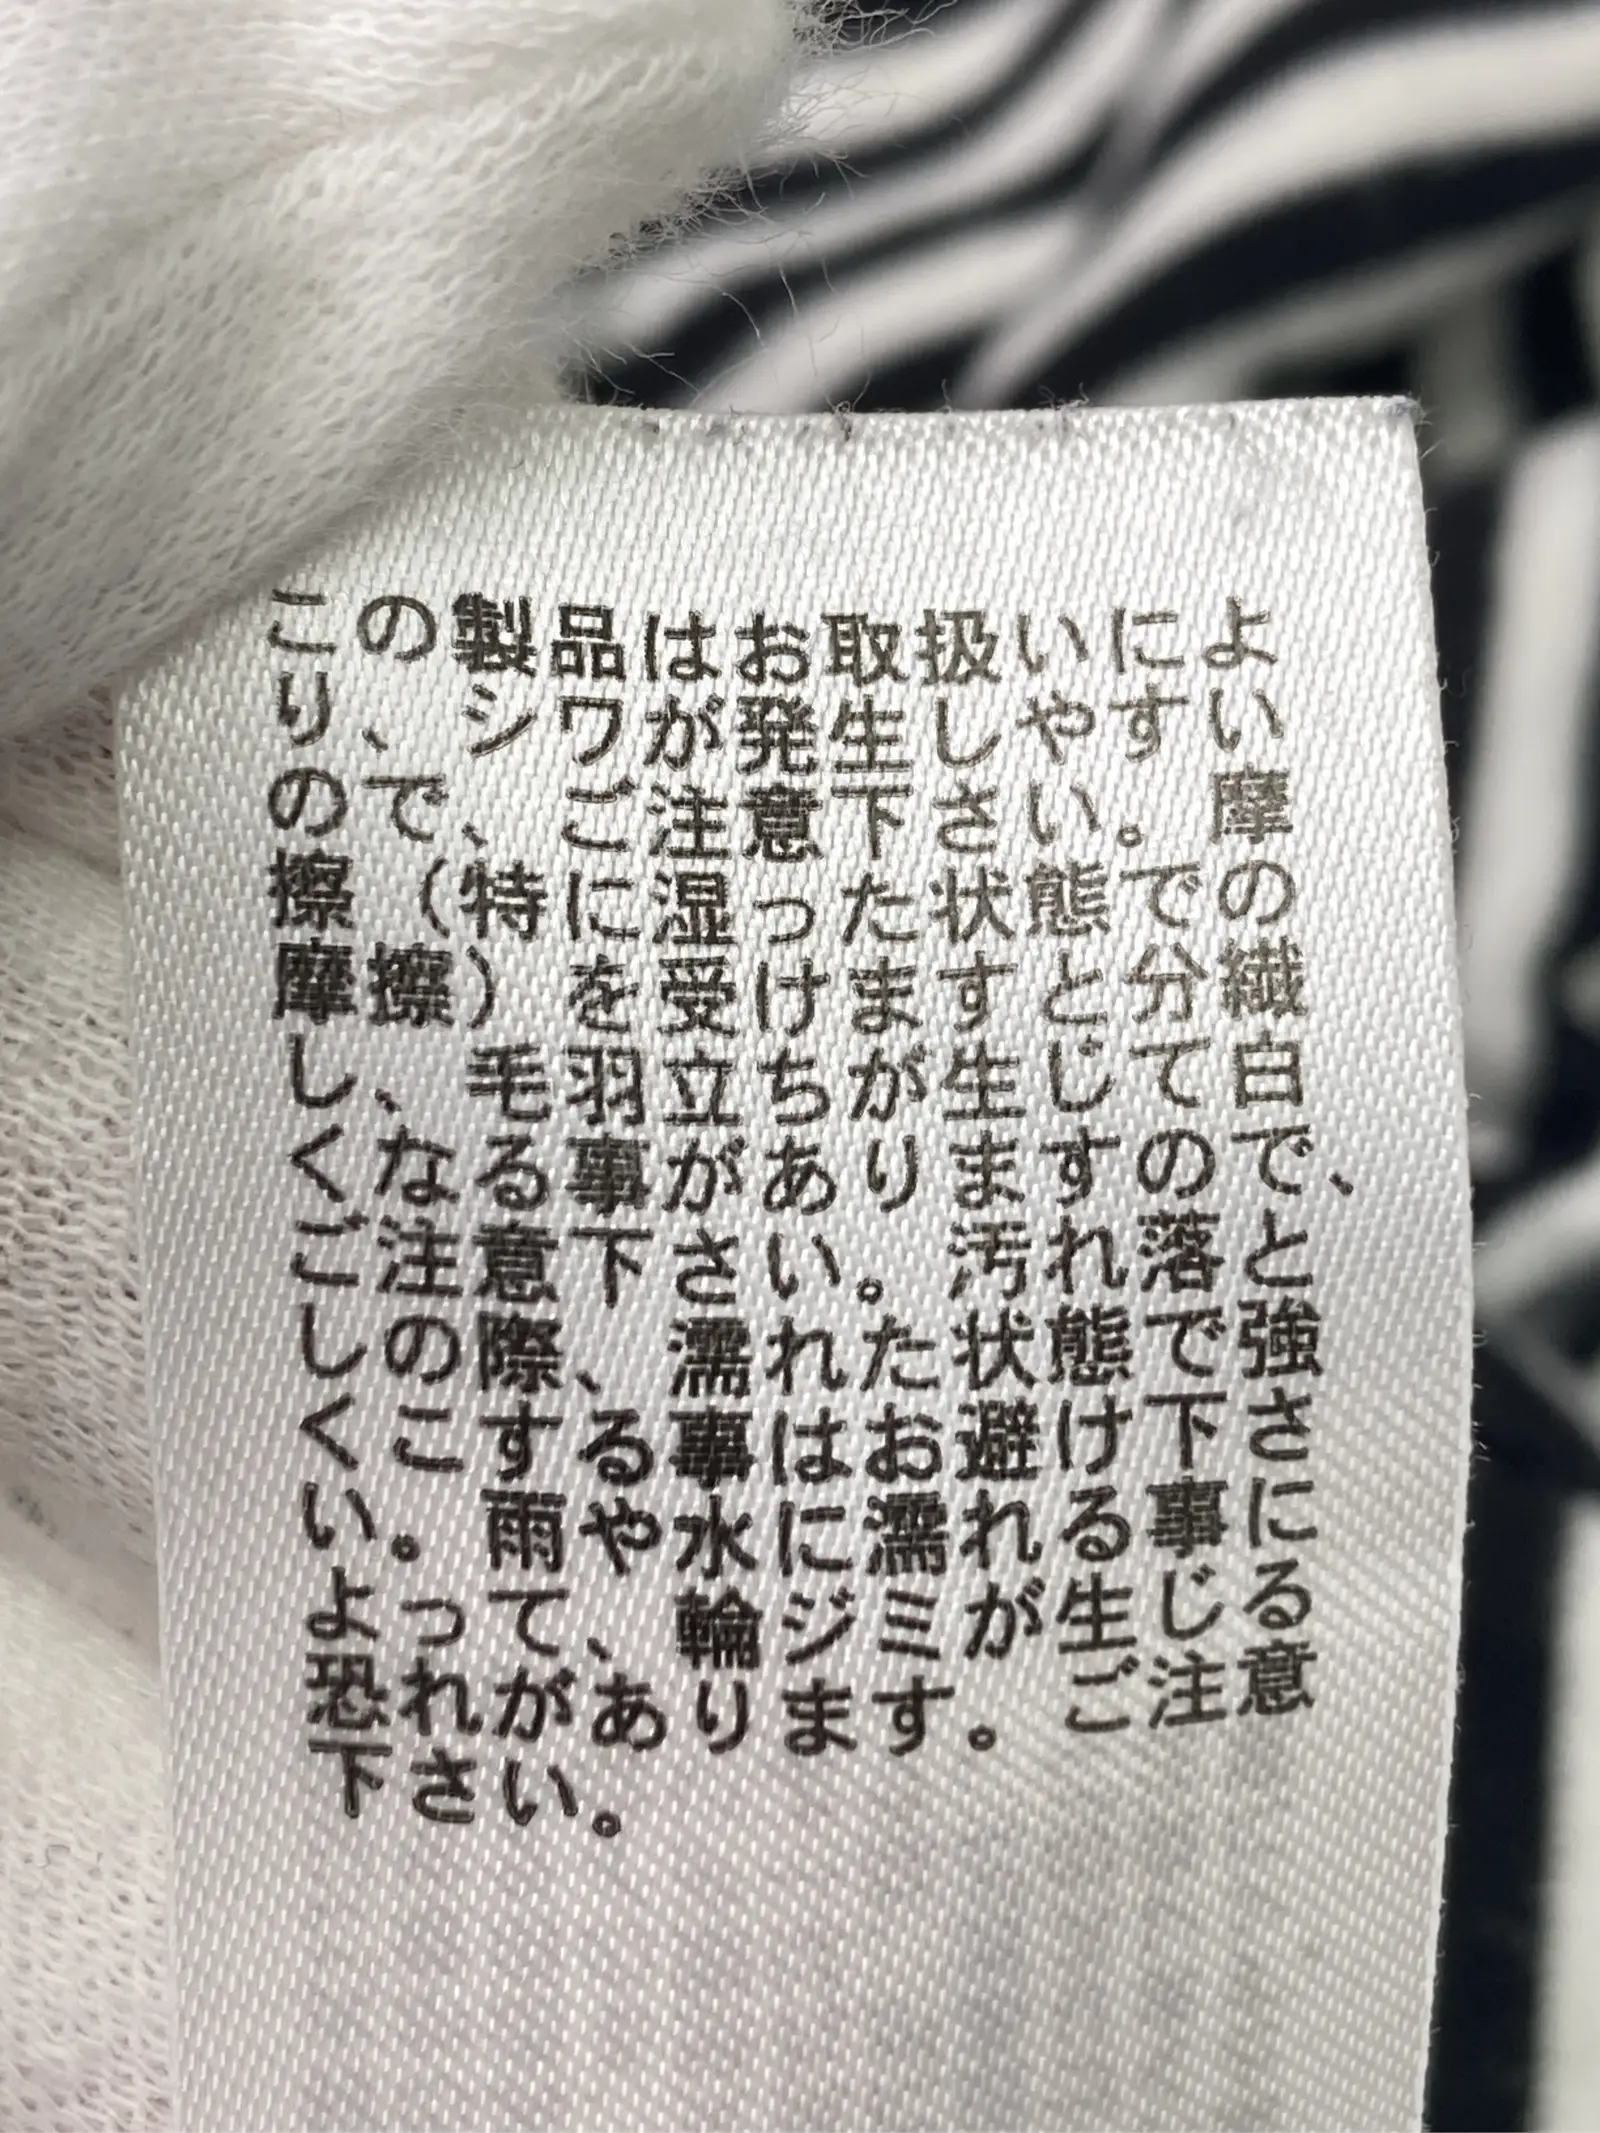 この製品はお取扱いによ
り、シワが発生しやすい
ので、ご注意下さい。摩
擦（特に湿った状態での
摩擦）を受けますと分繊
し、毛羽立ちが生じて白
くなる事がありますので、
ご注意下さい。汚れ落と
しの際、濡れた状態で強
くこする事はお避け下さ
い。雨や水に濡れる事に
よって、輪ジミが生じる
恐れがあります。ご注意
下さい。